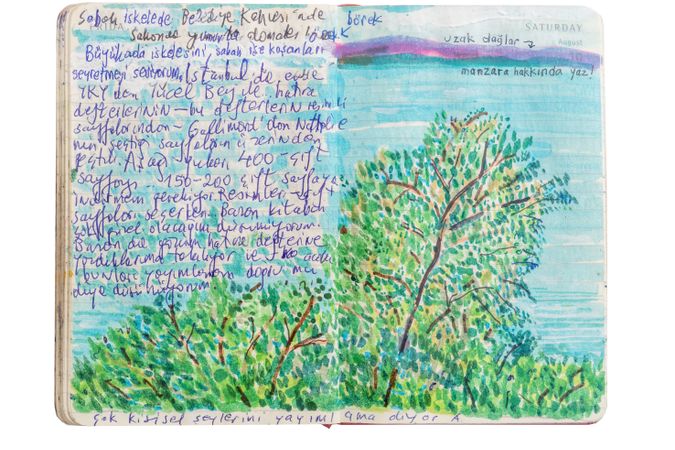 Sabah iskelede Belediye Kahvesi'nde börek
Sahanda yumurta domates börek
Büyükada iskelesini, sabah işe koşanları
seyretmeyi seviyorum. İstanbul'da evde
YKY'den Yücel Bey ile hatıra
defterlerinin – bu defterlerin resimli
sayfalarından Gallimard'dan Nathalie
nin seçtiği sayfaların üzerinden
geçtik. Aşağı yukarı 400 çift
sayfayı 150-200 çift sayfaya
indirmem gerekiyor. Resimleri
sayfaları seçerken bazen kitabın
güzel olacağını düşünüyorum.
Bazen da yorum hatıra defterine
yazdıklarıma takılıyor ve
bunları yayımlamam doğru mu
diye düşünüyorum
çok kişisel şeylerini yayımlama diyor A
SATURDAY
August
uzak dağlar
manzara hakkında yaz!